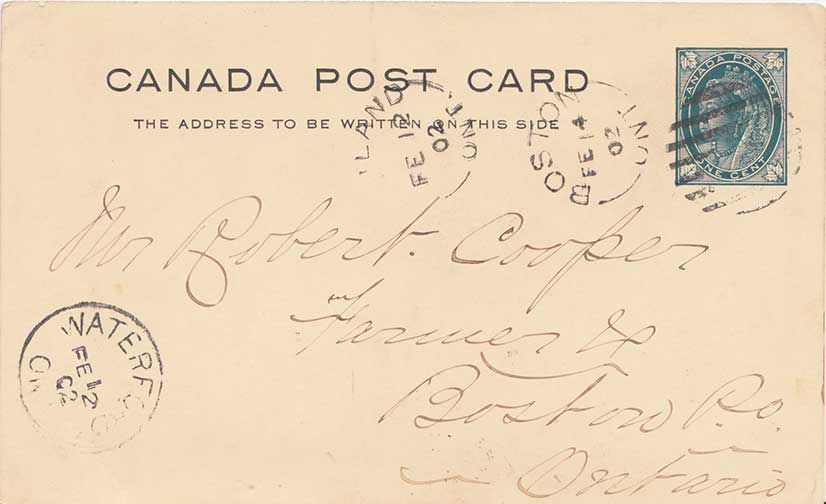 CANADA POST CARD
THE ADDRESS TO BE WRITTEN ON THIS SIDE
CANADA POSTAGE
ONE CENT
LAND
FE 12
02
ONT
BOSTON
FE 14
02
ONT
Mr Robert. Cooper
Farmer &
Boston P.o.
Ontario
WATERFO
FE 12
02